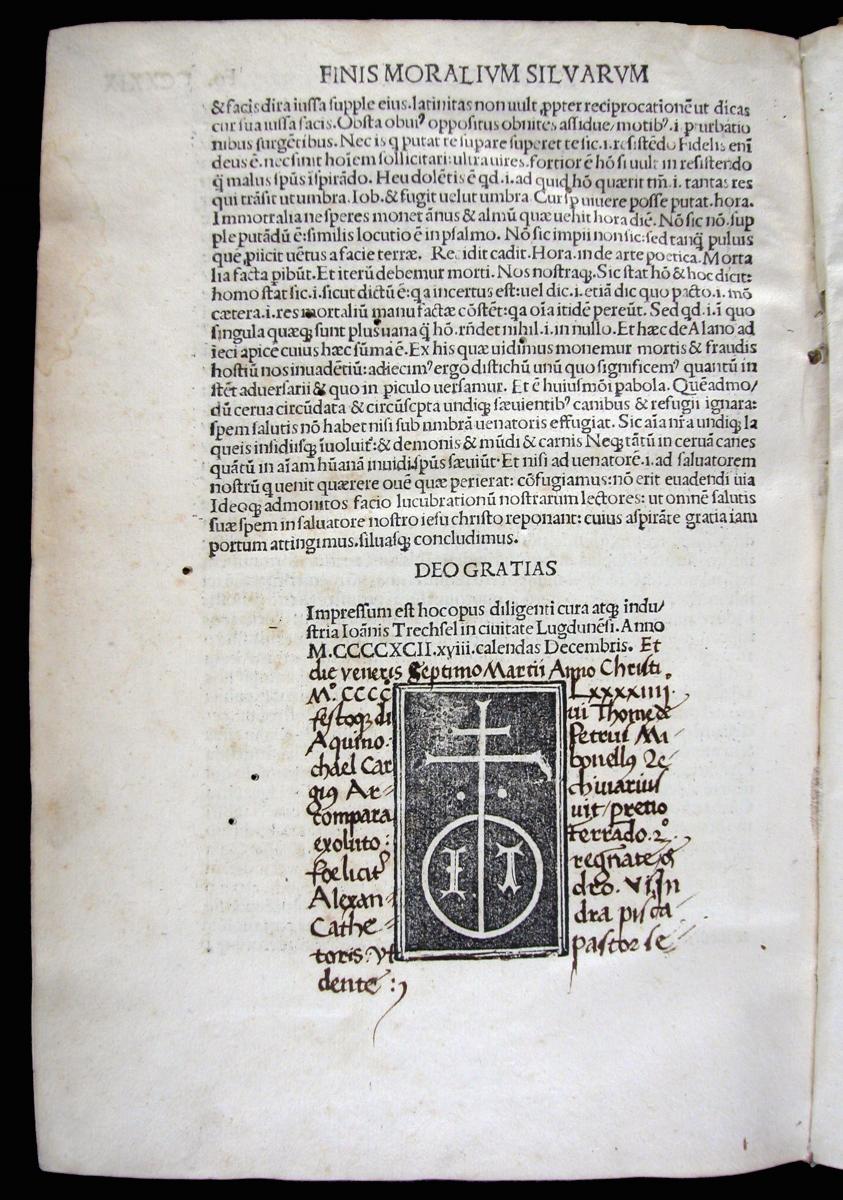 FINIS MORALIVM SILVARVM
& facis dira iussa supple eius. latinitas non uult ꝓpter reciprocationē ut dicas
cur sua iussa facis. Obsta obuiꝰ oppositus obnites assidue, motibꝰ .i. pturbatio
nibus surgētibus. Nec is q putat te supare superet te sic .i. resistēdo Fidelis enī
deus ē. nec sinit hoīem sollicitari ultra uires. fortior ē hō si uult in resistendo
q̄ malus spūs īspirādo. Heu dolētis ē qd .i. ad quid hō quærit tm̄ .i. tantas res
qui trāsit ut umbra. Iob. & fugit uelut umbra. Cur sp uiuere posse putat. hora.
Immortalia ne speres monet ānus & almū quæ uehit hora diē. Nō sic nō. sup
ple putādū ē: similis locutio ē in psalmo. Nō sic impii non sic: sed tanq̄ puluis
quē ꝓiicit uētus a facie terræ. Recidit cadit. Hora. in de arte poetica. Morta
lia facta pibūt. Et iterū debemur morti. Nos nostraqꝫ. Sic stat hō & hoc dicit:
homo stat sic .i. sicut dictū ē: q a incertus est: uel dic .i. etiā dic quo pacto .i. mō
cætera .i. res mortaliū manu factæ cōstēt: qa oīa itidē pereūt. Sed qd .i. ī quo
singula quæqꝫ sunt plus uana q̄ hō. rn̄det nihil .i. in nullo. Et hæc de Alano ad
ieci apice cuius hæc sūma ē. Ex his quæ uidimus monemur mortis & fraudis
hostiū nos inuadētiū: adiecimꝰ ergo distichū unū quo significemꝰ quantū in
stēt aduersarii & quo in piculo uersamur. Et ē huiusmōi pabola. Quēadmo/
dū cerua circūdata & circūscpta undiqꝫ sæuientibꝰ canibus & refugii ignara:
spem salutis nō habet nisi sub umbrā uenatoris effugiat. Sic aīa nr̄a undiqꝫ la
queis insidiisqꝫ īuoluit᷑: & demonis & mūdi & carnis Neqꝫ tātū in ceruā canes
quātū in aīam hūanā inuidi spūs sæuiūt. Et nisi ad uenatorē .i. ad saluatorem
nostrū q uenit quærere ouē quæ perierat: cōfugiamus: nō erit euadendi uia
Ideoqꝫ admonitos facio lucubrationū nostrarum lectores: ut omnē salutis
suæ spem in saluatore nostro iesu christo reponant: cuius aspirāte gratia iam
portum attingimus. siluasqꝫ concludimus.
DEO GRATIAS
Impressum est hoc opus diligenti cura atqꝫ indu/
stria Ioānis Trechsel in ciuitate Lugdunēsi. Anno
M.CCCCXCII. xviii. calendas Decembris. Et
die veneris Septimo Martii Anno Christi
Mº. CCCC LXXXXIIII.
festoqꝫ di ui Thome de
Aquino. Petrus Mi
chael Car bonellꝰ
giꝰ Ar- chiuarius
compara uit, pretio
exoluto:
foeliciť deo. VI. In
Alexan- dra pisca
Cathe- pastor se-
toris: vt
dente:
I T